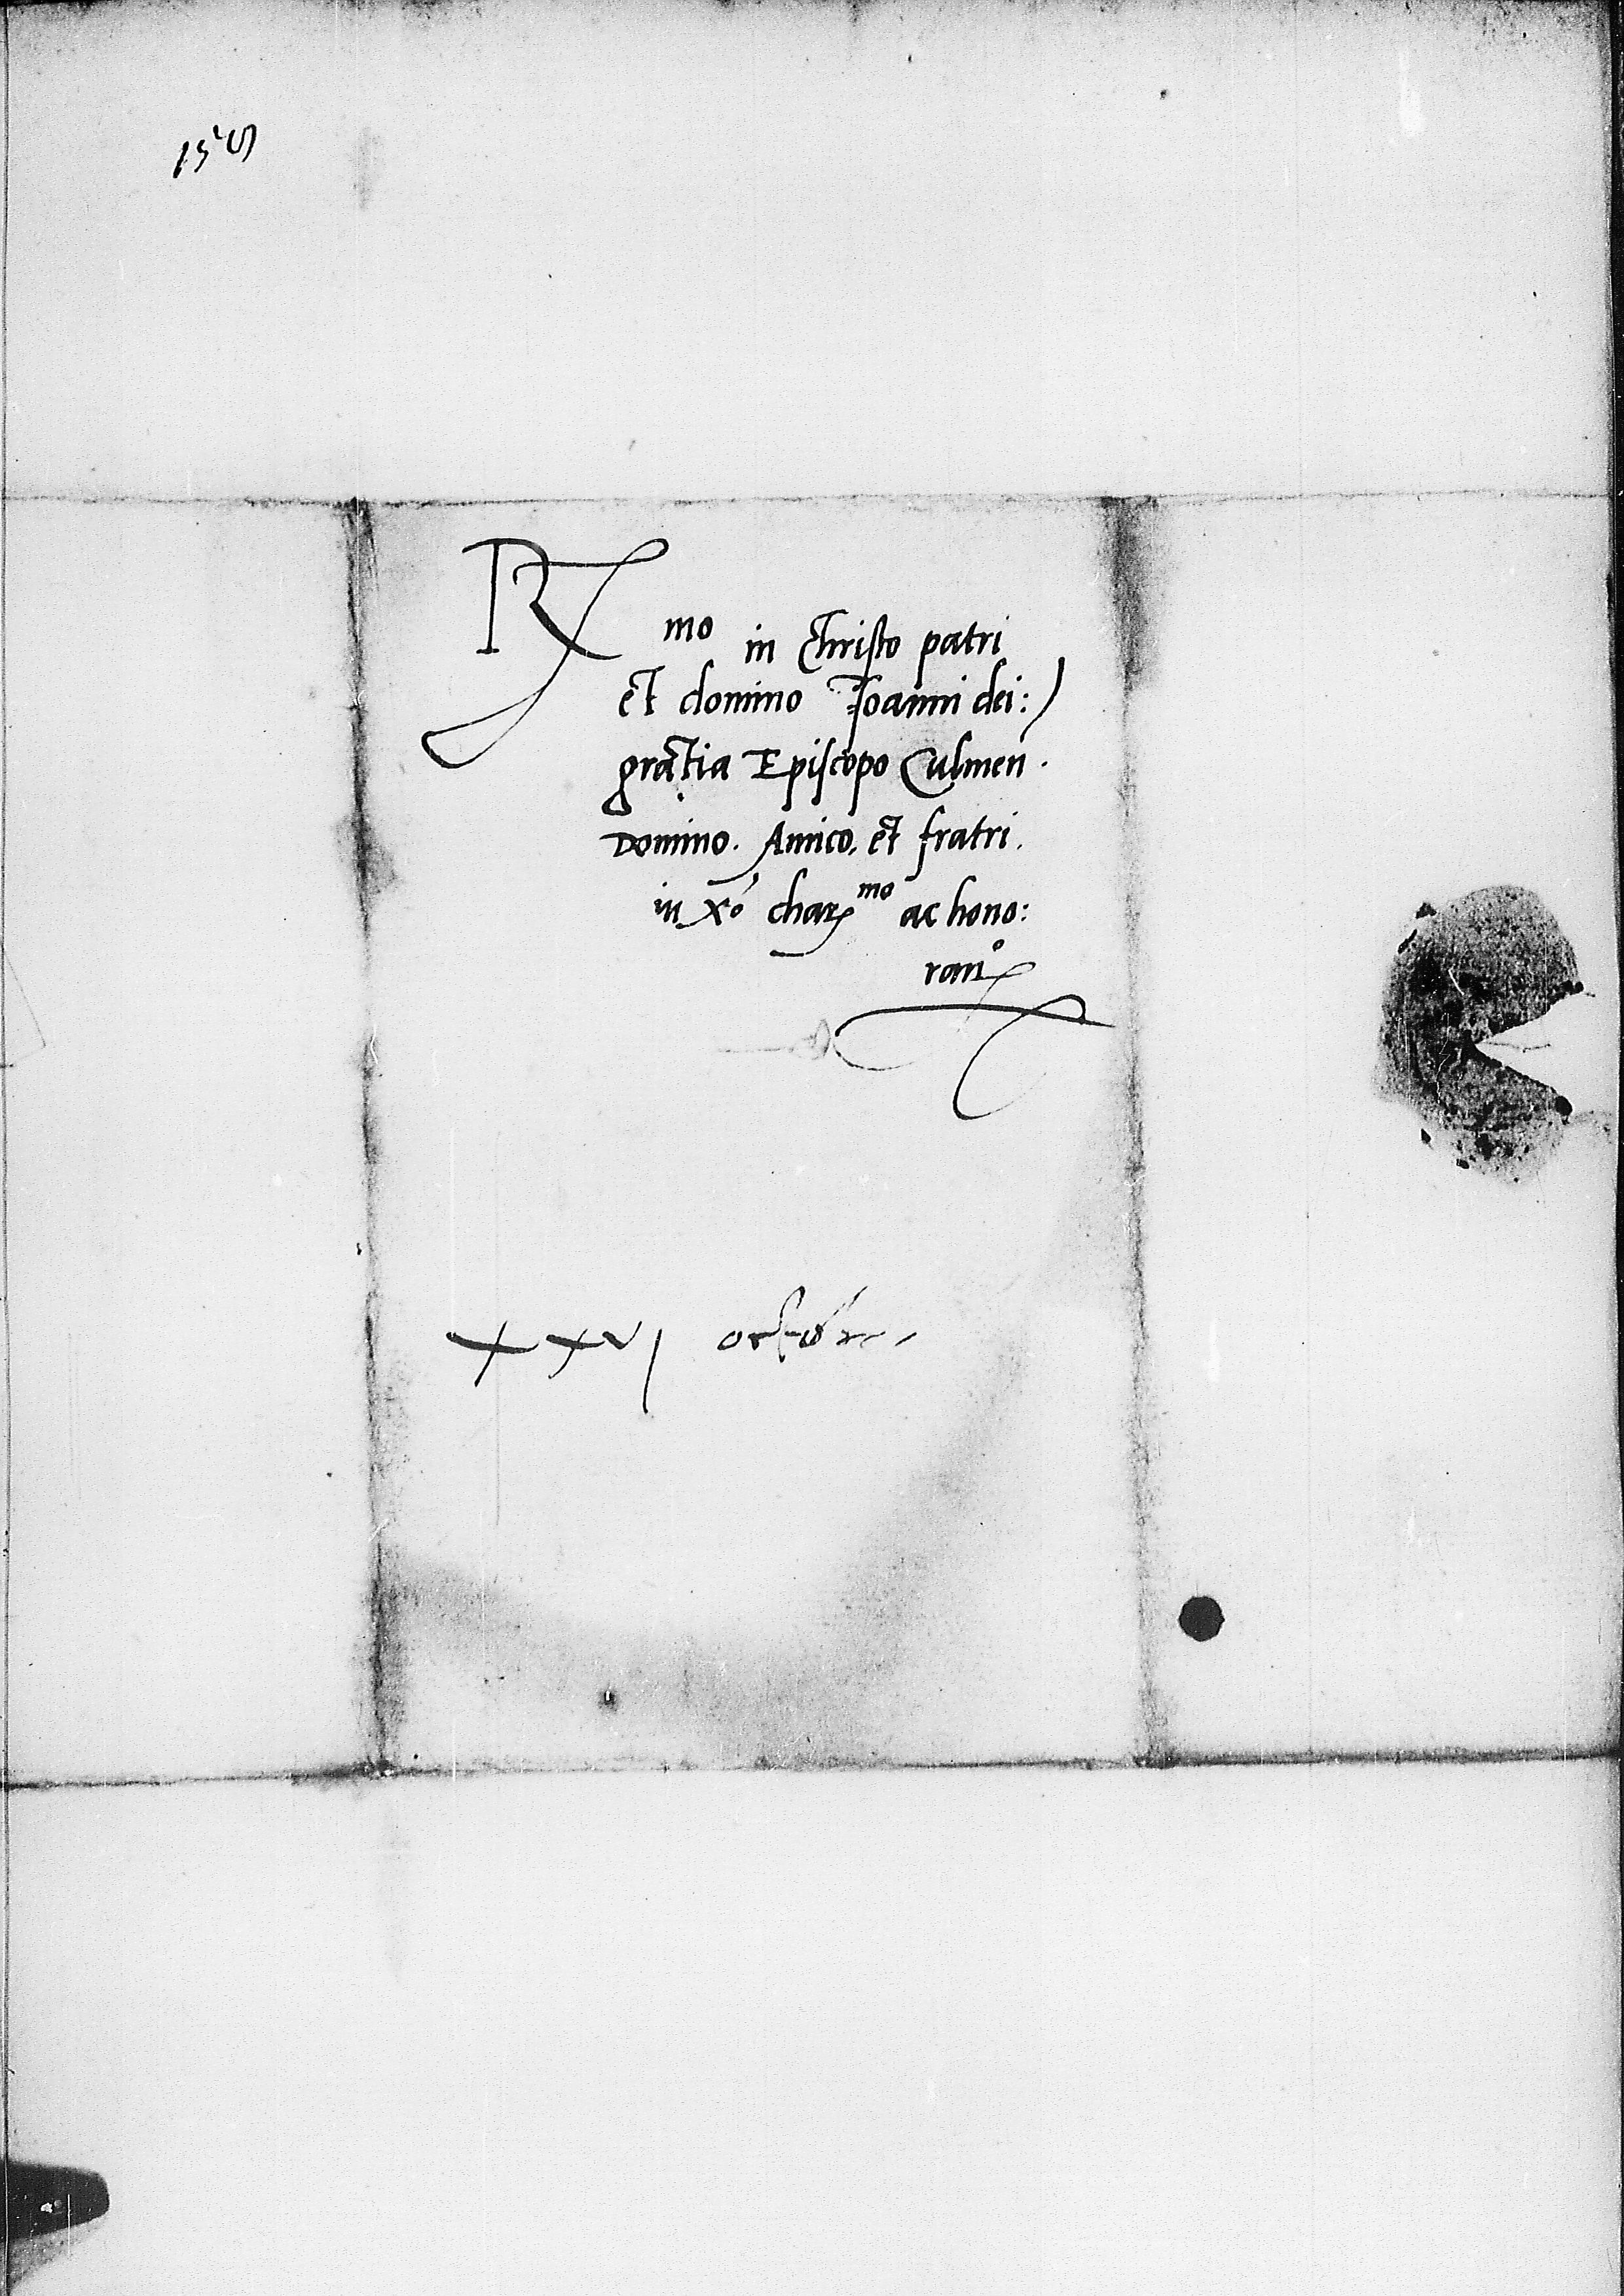 R mo in Christo patri
et domino Joanni dei:)
gratia Episcopo Culmen.
Domino. Amico. et fratri.
in Xº char mo ac hono:
ranº
xxvi octobr